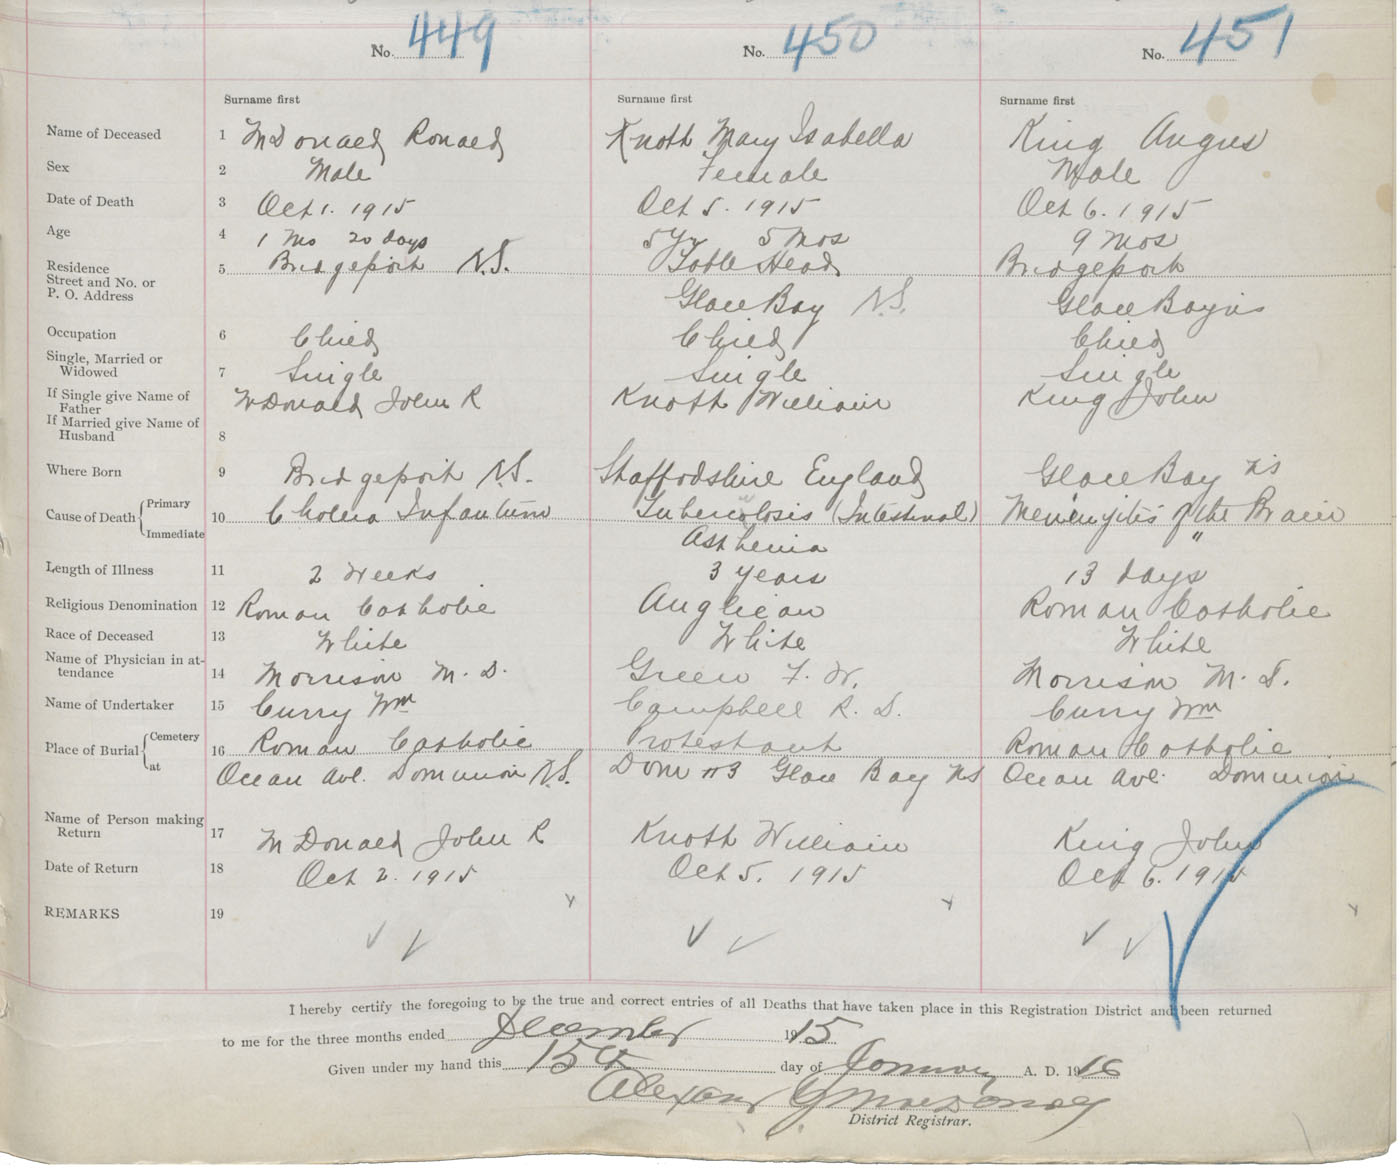 No. 449 No. 450 No. 451
Surname first Surname first Surname first
Name of Deceased 1 McDonald Ronald Knoth Mary Isabella King Angus
Sex 2 Male Female Male
Date of Death 3 Oct 1. 1915 Oct 5. 1915 Oct 6. 1915
Age 4 1 Mo 20 days 5 Yr 5 Mos 9 Mos
Residence 5 Bridgeport N.S. Table Head Bridgeport
Street and No. or
P. O. Address Glace Bay N.S. Glace Bay NS
Occupation 6 Child Child Child
Single, Married or
Widowed 7 Single Single Single
If Single give Name of
Father McDonald John R Knoth William King John
If Married give Name of
Husband 8
Where Born 9 Bridgeport N.S. Staffordshire England Glace Bay NS
Cause of Death Primary 10 Cholera Infantum Tuberculosis (Intestinal) Meningitis of the Brain
Immediate Asthenia "
Length of Illness 11 2 Weeks 3 years 13 days
Religious Denomination 12 Roman Catholic Anglican Roman Catholic
Race of Deceased 13 White White White
Name of Physician in at-
tendance 14 Morrison M. D. Green F. W. Morrison M. D.
Name of Undertaker 15 Curry Wm Campbell R. D. Curry Wm
Place of Burial Cemetery 16 Roman Catholic Protestant Roman Catholic
at Ocean Ave. Dominion N.S. Dom #3 Glace Bay NS Ocean Ave. Dominion
Name of Person making
Return 17 McDonald John R Knoth William King John
Date of Return 18 Oct 2. 1915 Oct 5. 1915 Oct 6. 1915
REMARKS 19
I hereby certify the foregoing to be the true and correct entries of all Deaths that have taken place in this Registration District and been returned
to me for the three months ended December 1915
Given under my hand this 15th day of January A. D. 1916
District Registrar.